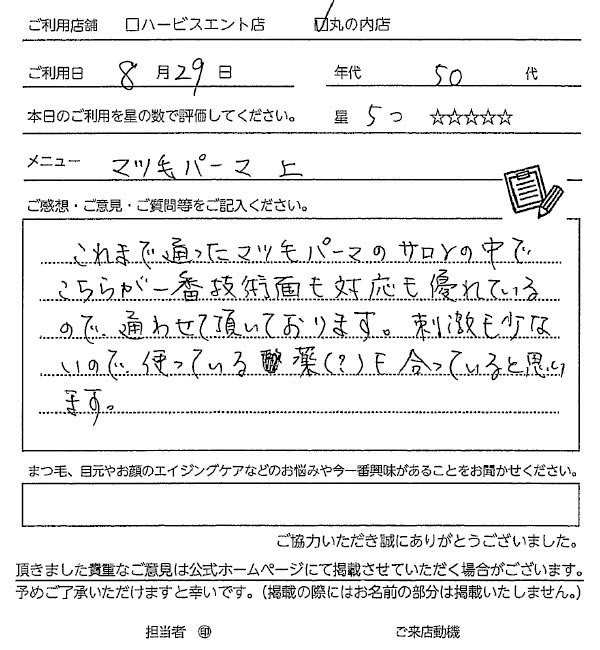 ご利用店舗 □ハービスエント店 ☑丸の内店
ご利用日 8 月 29 日 年代 50 代
本日のご利用を星の数で評価してください。 星 5つ ☆☆☆☆☆
メニュー マツ毛パーマ 上
ご感想・ご意見・ご質問等をご記入ください。
これまで通ったマツ毛パーマのサロンの中で
こちらが一番技術面も対応も優れている
ので、通わせて頂いております。刺激も少な
いので、使っている薬(?)も合っていると思い
ます。
まつ毛、目元やお顔のエイジングケアなどのお悩みや今一番興味があることをお聞かせください。
ご協力いただき誠にありがとうございました。
頂きました貴重なご意見は公式ホームページにて掲載させていただく場合がございます。
予めご了承いただけますと幸いです。（掲載の際にはお名前の部分は掲載いたしません。）
担当者 ㊞ ご来店動機